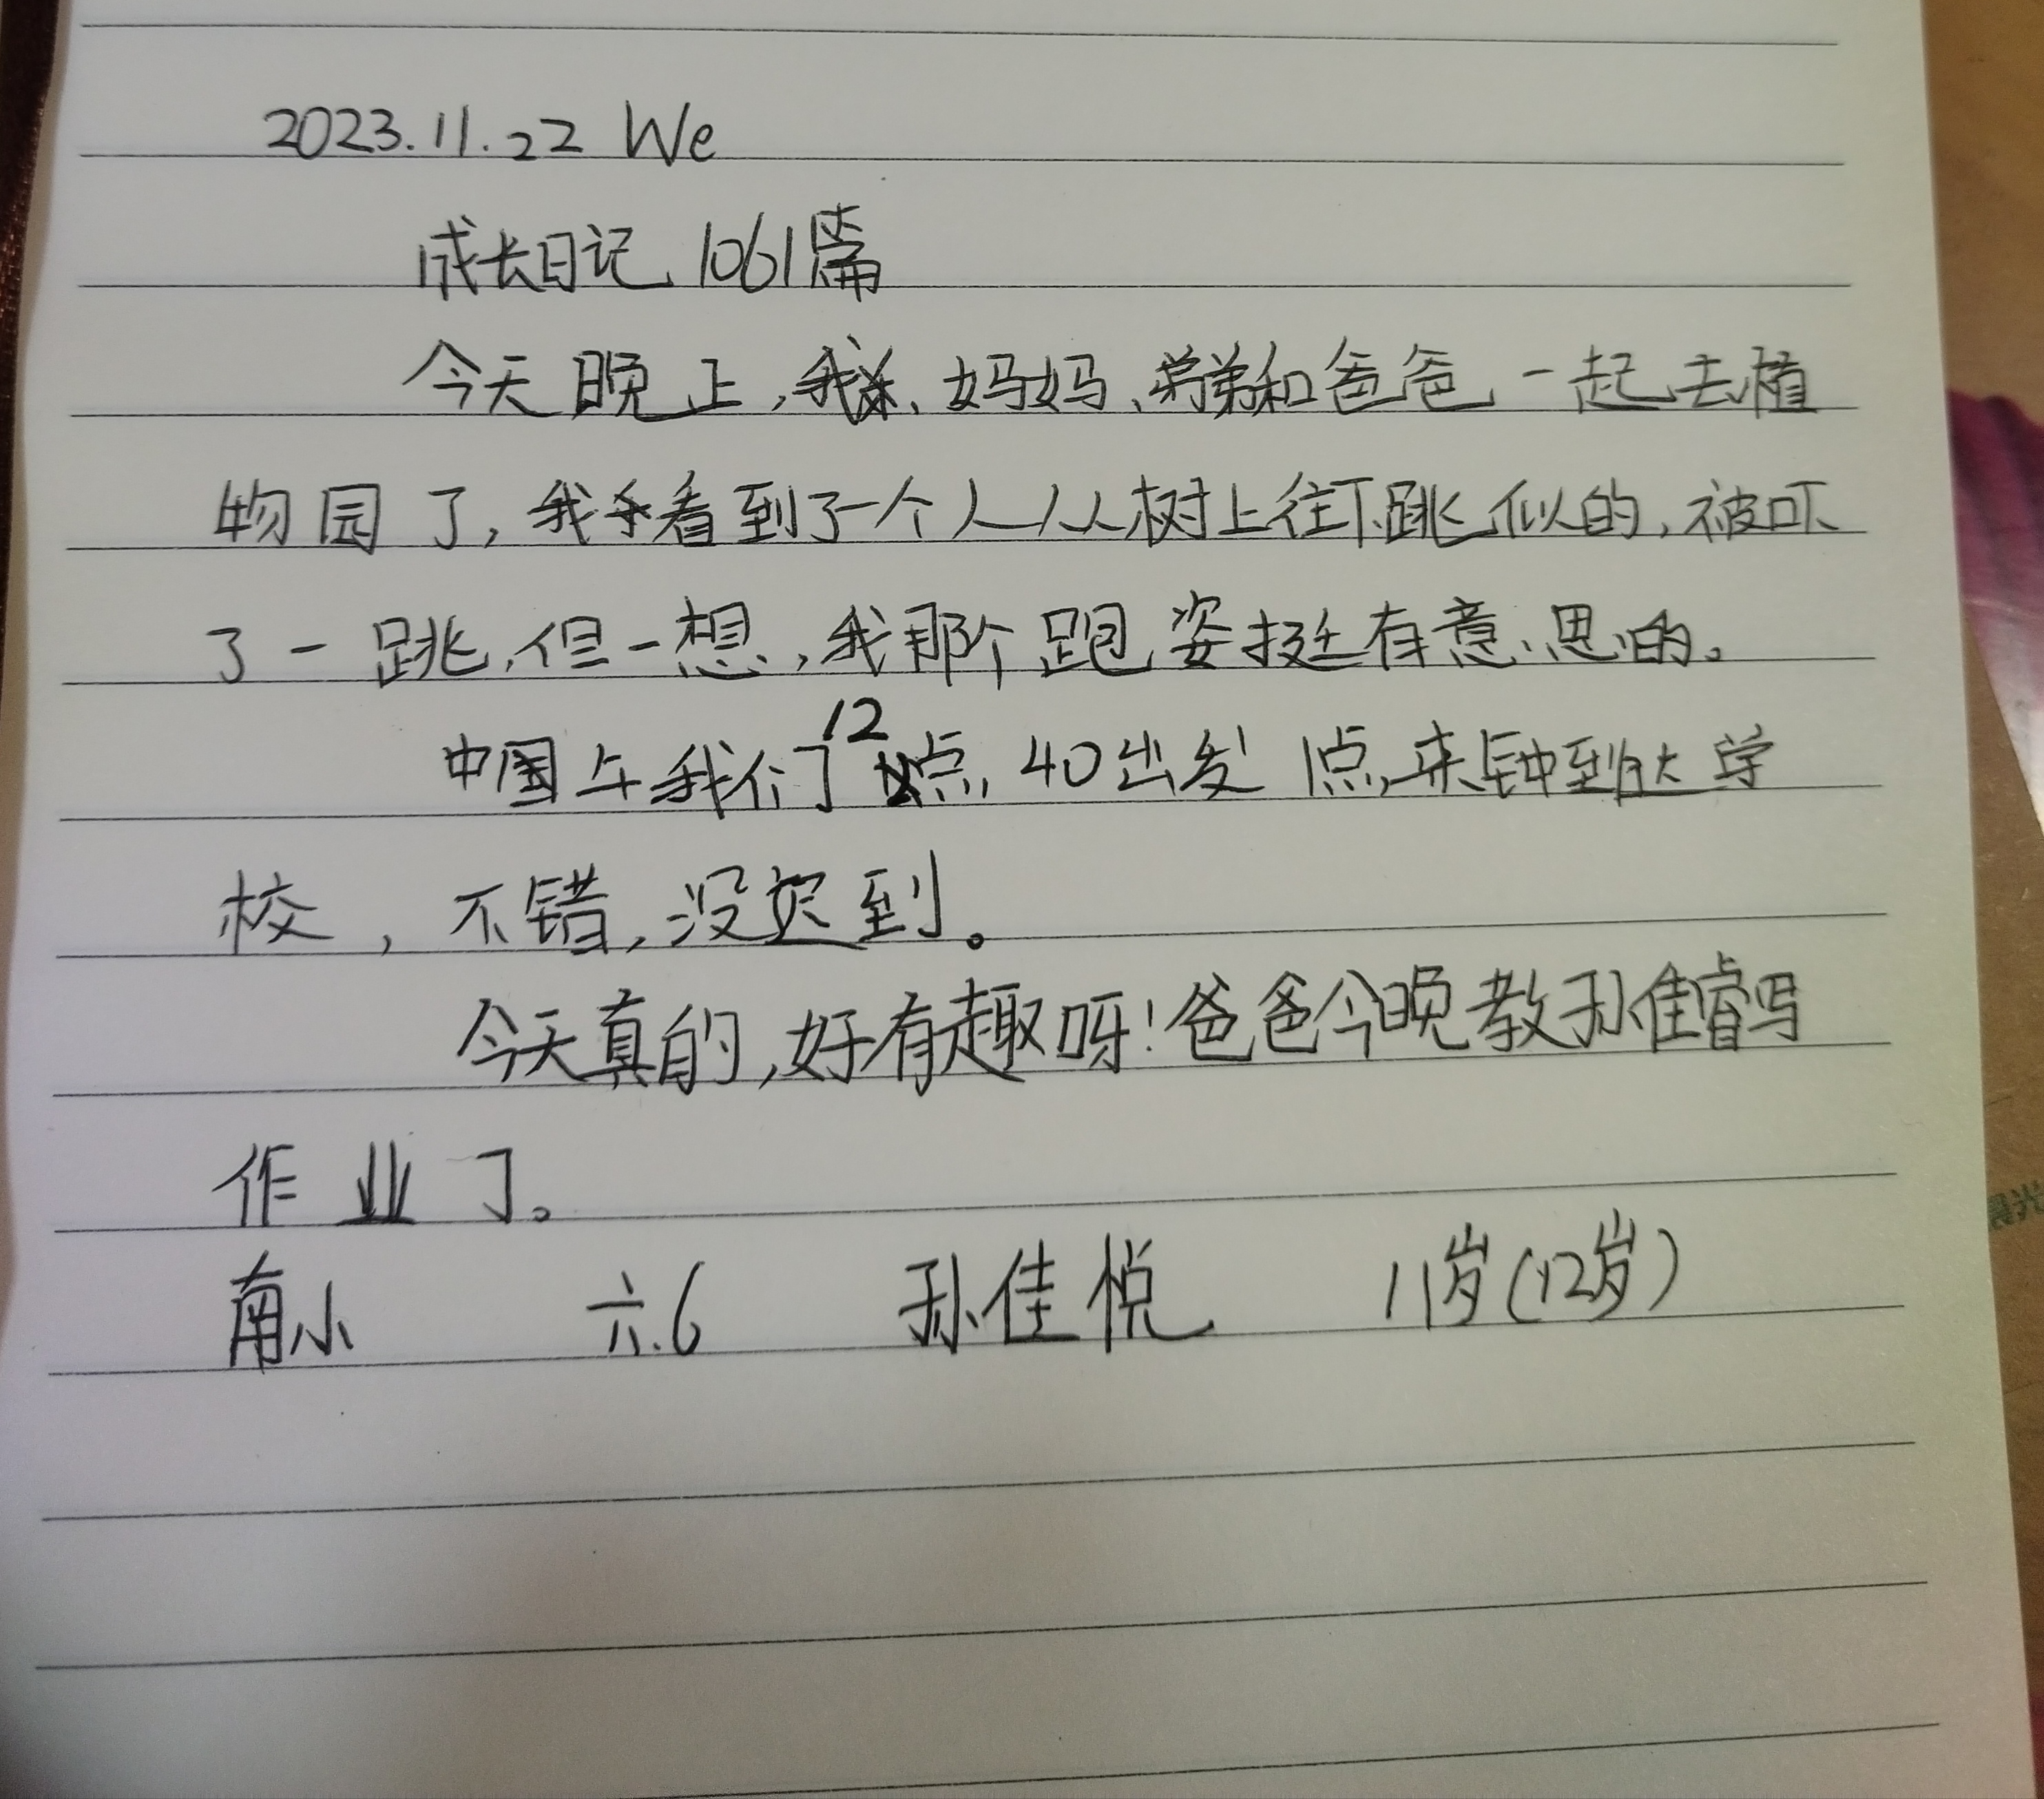 2023.11.22 We
成长日记 1061篇
今天晚上,我、妈妈、弟弟和爸爸一起去植
物园了,我看到了一个人从树上往下跳似的,被吓
了一跳,但一想,我那个跑姿挺有意思的。
中国午我们12点40出发 1点来钟到达学
校,不错,没迟到。
今天真的,好有趣呀!爸爸今晚教孙佳睿写
作业了。
南小 六.6 孙佳悦 11岁(12岁)